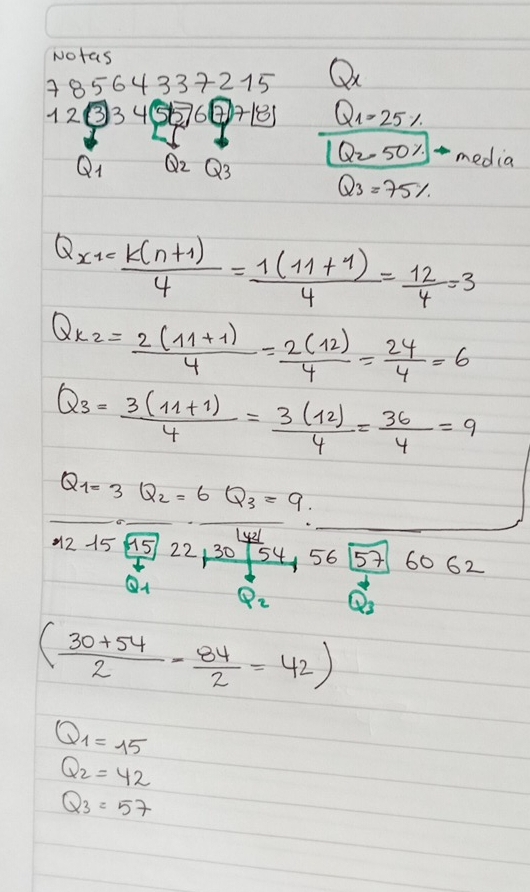 Notas
7 8 5 6 4 3 3 7 2 1 5
1 2 3 3 4 5 5 6 7 7 8
Q1 Q2 Q3
Qx
Q1=25%
Q2=50% → media
Q3=75%.
Qx1= k(n+1)/4 = 1(11+1)/4 = 12/4 =3
Qk2 = 2(11+1)/4 = 2(12)/4 = 24/4 = 6
Q3 = 3(11+1)/4 = 3(12)/4 = 36/4 = 9
Q1= 3 Q2 = 6 Q3 = 9.
|42|
12 15 15 22 30 54 56 57 60 62
Q1 Q2 Q3
(30+54/2 = 84/2 = 42)
Q1 = 15
Q2 = 42
Q3 = 57